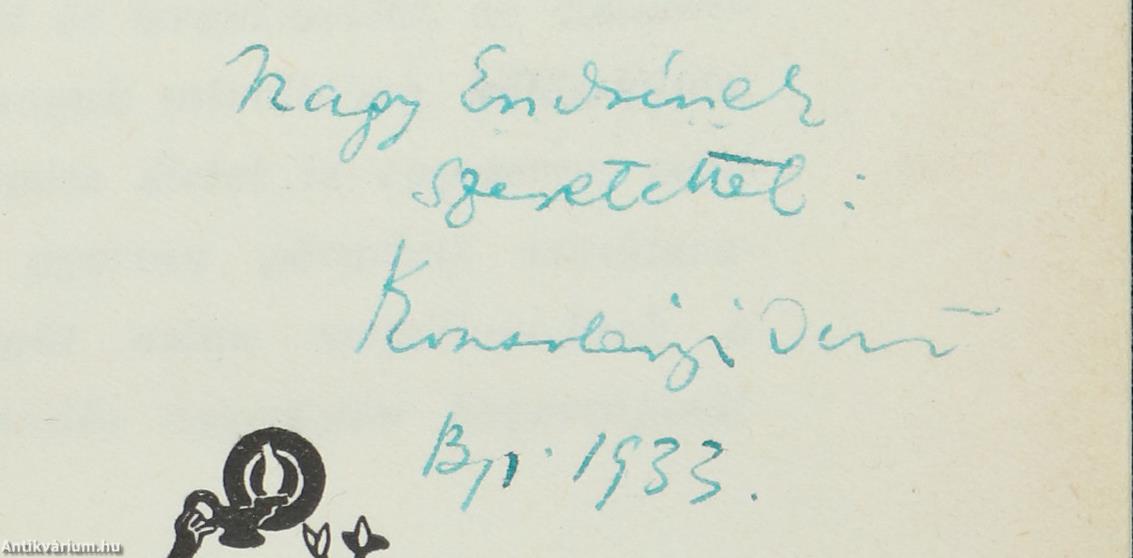 Nagy Endrének
szeretettel:
Kosztolányi Dezső
Bp. 1933.
Antikvárium.hu